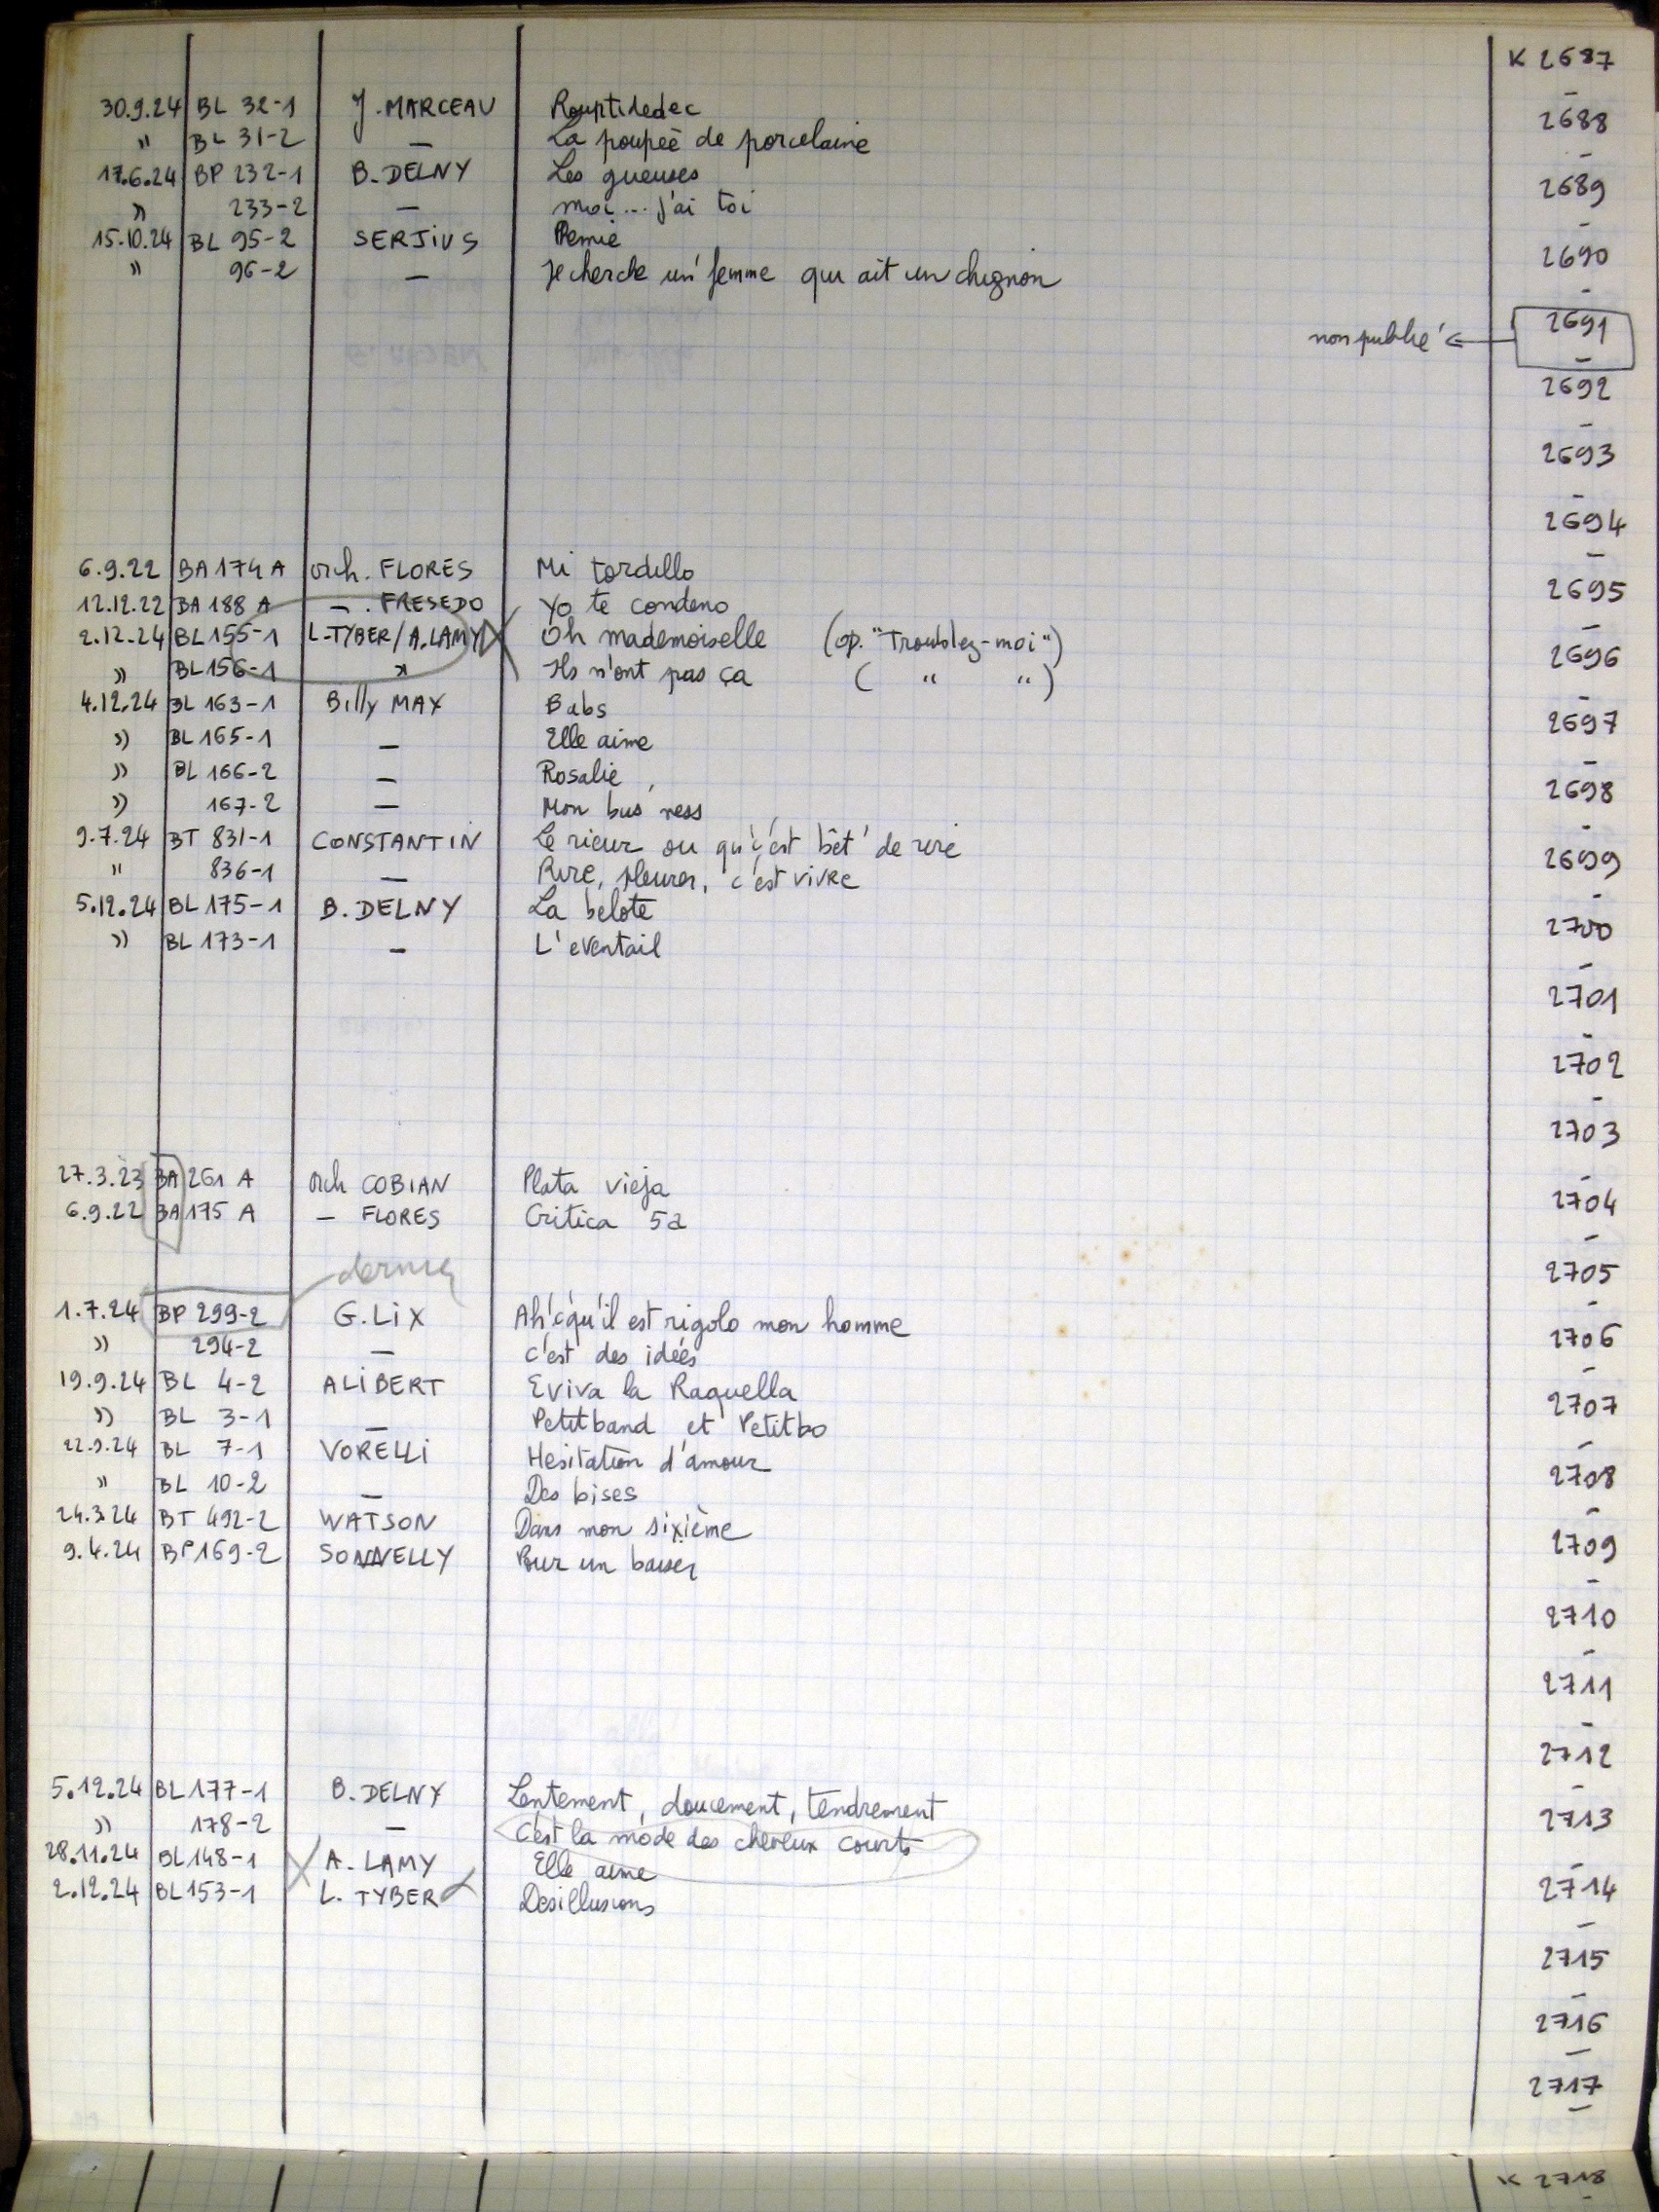 K 2687
30.9.24 BL 32-1 J. MARCEAU Rouptidedec
–
" BL 31-2 — La poupeé de porcelaine 2688
–
17.6.24 BP 232-1 B. DELNY Les gueuses 2689
" 233-2 — moi... j'ai toi
–
15.10.24 BL 95-2 SERJIUS
" 96-2 — Je cherche un' femme qui ait un chignon 2690
–
non publié ← 2691
–
2692
–
2693
–
2694
–
6.9.22 BA 174 A orch. FLORES Mi tordillo
12.12.22 BA 188 A — . FRESEDO Yo te condeno 2695
–
2.12.24 BL 155-1 L. TYBER/A. LAMY X Oh mademoiselle (op. "Troublez-moi")
" BL 156-1 " Ils n'ont pas ça ( " ") 2696
–
4.12.24 BL 163-1 Billy MAX Babs
" BL 165-1 — Elle aime 2697
–
" BL 166-2 — Rosalie
" 167-2 — Mon bus'ness 2698
–
9.7.24 BT 831-1 CONSTANTIN Le rieur ou qu'c'est bêt' de rire
" 836-1 — Rire, pleurer, c'est vivre 2699
–
5.12.24 BL 175-1 B. DELNY La belote
" BL 173-1 — L'eventail 2700
–
2701
–
2702
–
2703
–
27.3.23 BA 261 A orch COBIAN Plata vieja
6.9.22 BA 175 A — FLORES Critica 5a 2704
–
dernier 2705
–
1.7.24 BP 299-2 G. LiX Ah! c'qu'il est rigolo mon homme
" 294-2 — C'est des idées 2706
–
19.9.24 BL 4-2 ALIBERT Eviva la Raquella
" BL 3-1 — Petitband et Petitbo 2707
–
22.9.24 BL 7-1 VORELLI Hesitation d'amour
" BL 10-2 — Des bises 2708
–
24.3.24 BT 492-2 WATSON Dans mon sixième
9.4.24 BP 169-2 SONNELLY Pour un baiser 2709
–
2710
–
2711
–
2712
–
5.12.24 BL 177-1 B. DELNY Lentement, doucement, tendrement
" 178-2 — C'est la mode des cheveux courts 2713
–
28.11.24 BL 148-1 X A. LAMY Elle aime
2.12.24 BL 153-1 L. TYBER Desillusions 2714
–
2715
–
2716
–
2717
–
K 2718